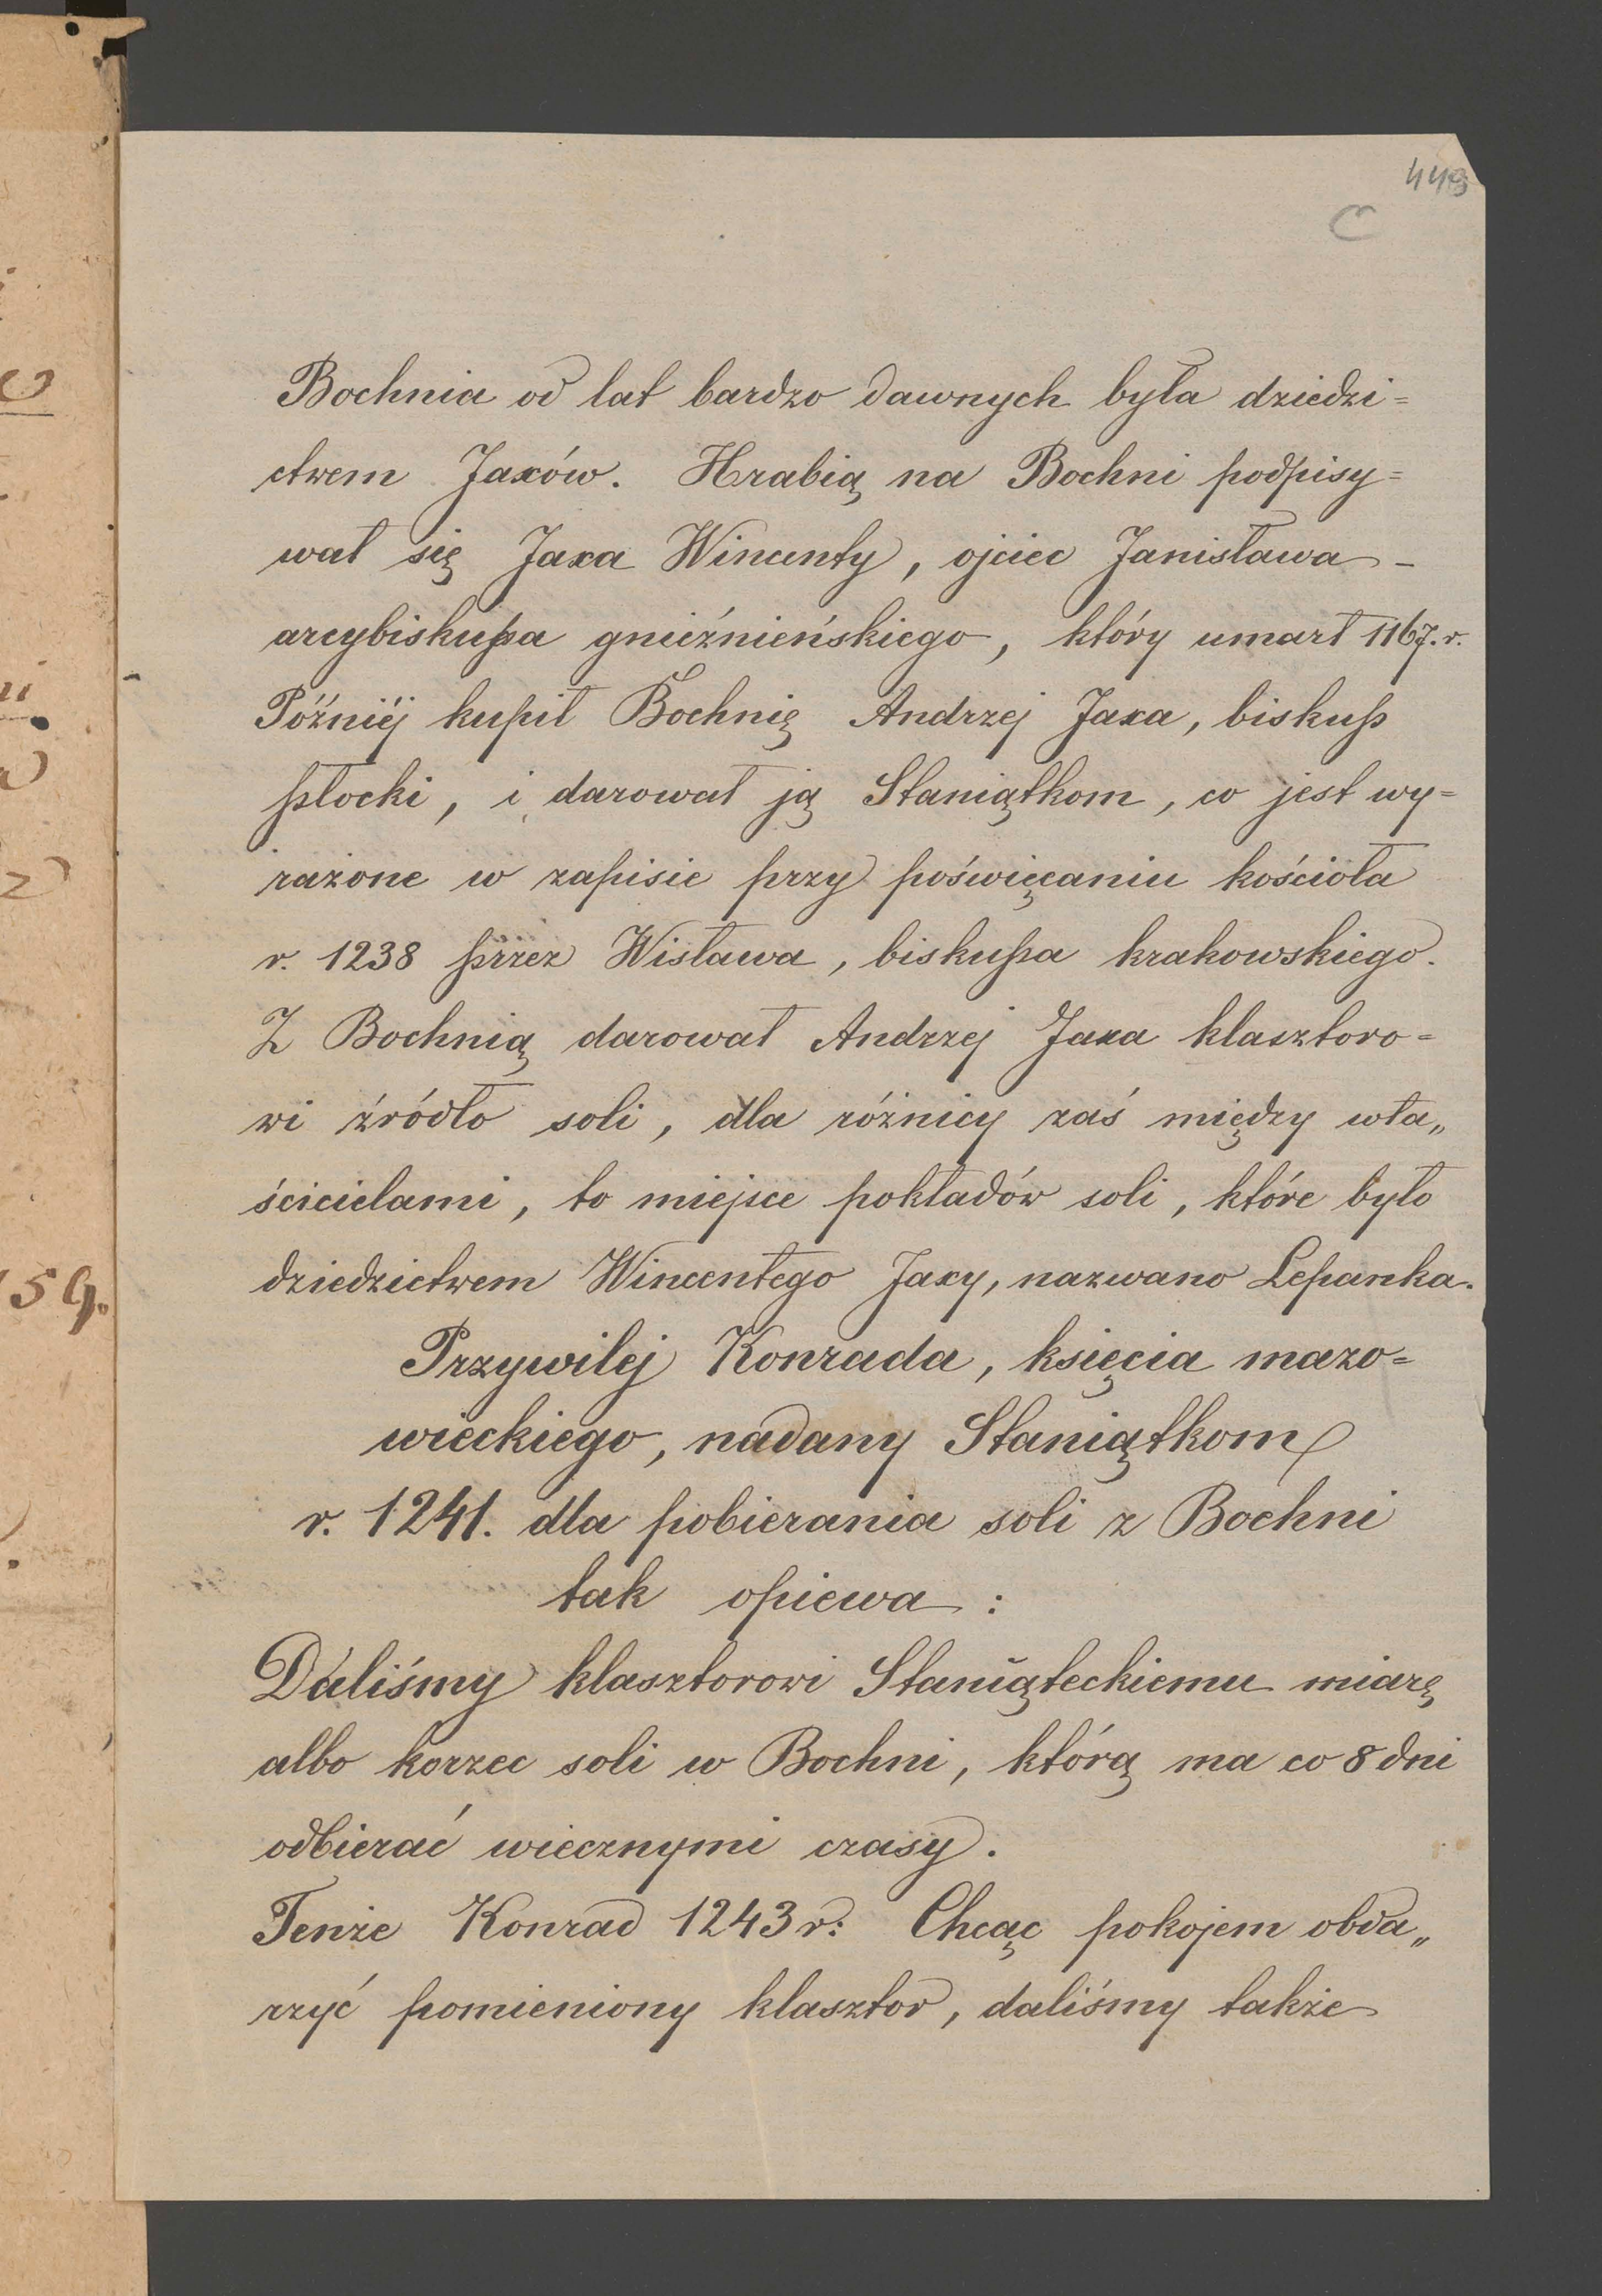 449
C
Bochnia od lat bardzo dawnych była dziedzi=
ctwem Jaxów. Hrabią na Bochni podpisy=
wał się Jaxa Wincenty, ojciec Janisława -
arcybiskupa gnieźnieńskiego, który umarł 1167. r.
Późniéj kupił Bochnię Andrzej Jaxa, biskup
płocki, i darował ją Staniątkom, co jest wy=
rażone w zapisie przy poświęcaniu kościoła
r. 1238 przez Wisława, biskupa krakowskiego.
Z Bochnią darował Andrzej Jaxa klasztoro=
wi źródło soli, dla różnicy zaś między wła„
ścicielami, to miejsce pokładów soli, które było
dziedzictwem Wincentego Jaxy, nazwano Lepanka.
Przywilej Konrada, księcia mazo=
wieckiego, nadany Staniątkom
r. 1241. dla pobierania soli z Bochni
tak opiewa:
Daliśmy klasztorowi Staniąteckiemu miarę
albo korzec soli w Bochni, którą ma co 8 dni
odbierać wiecznymi czasy.
Tenże Konrad 1243 r: Chcąc pokojem obda„
rzyć pomieniony klasztor, daliśmy także